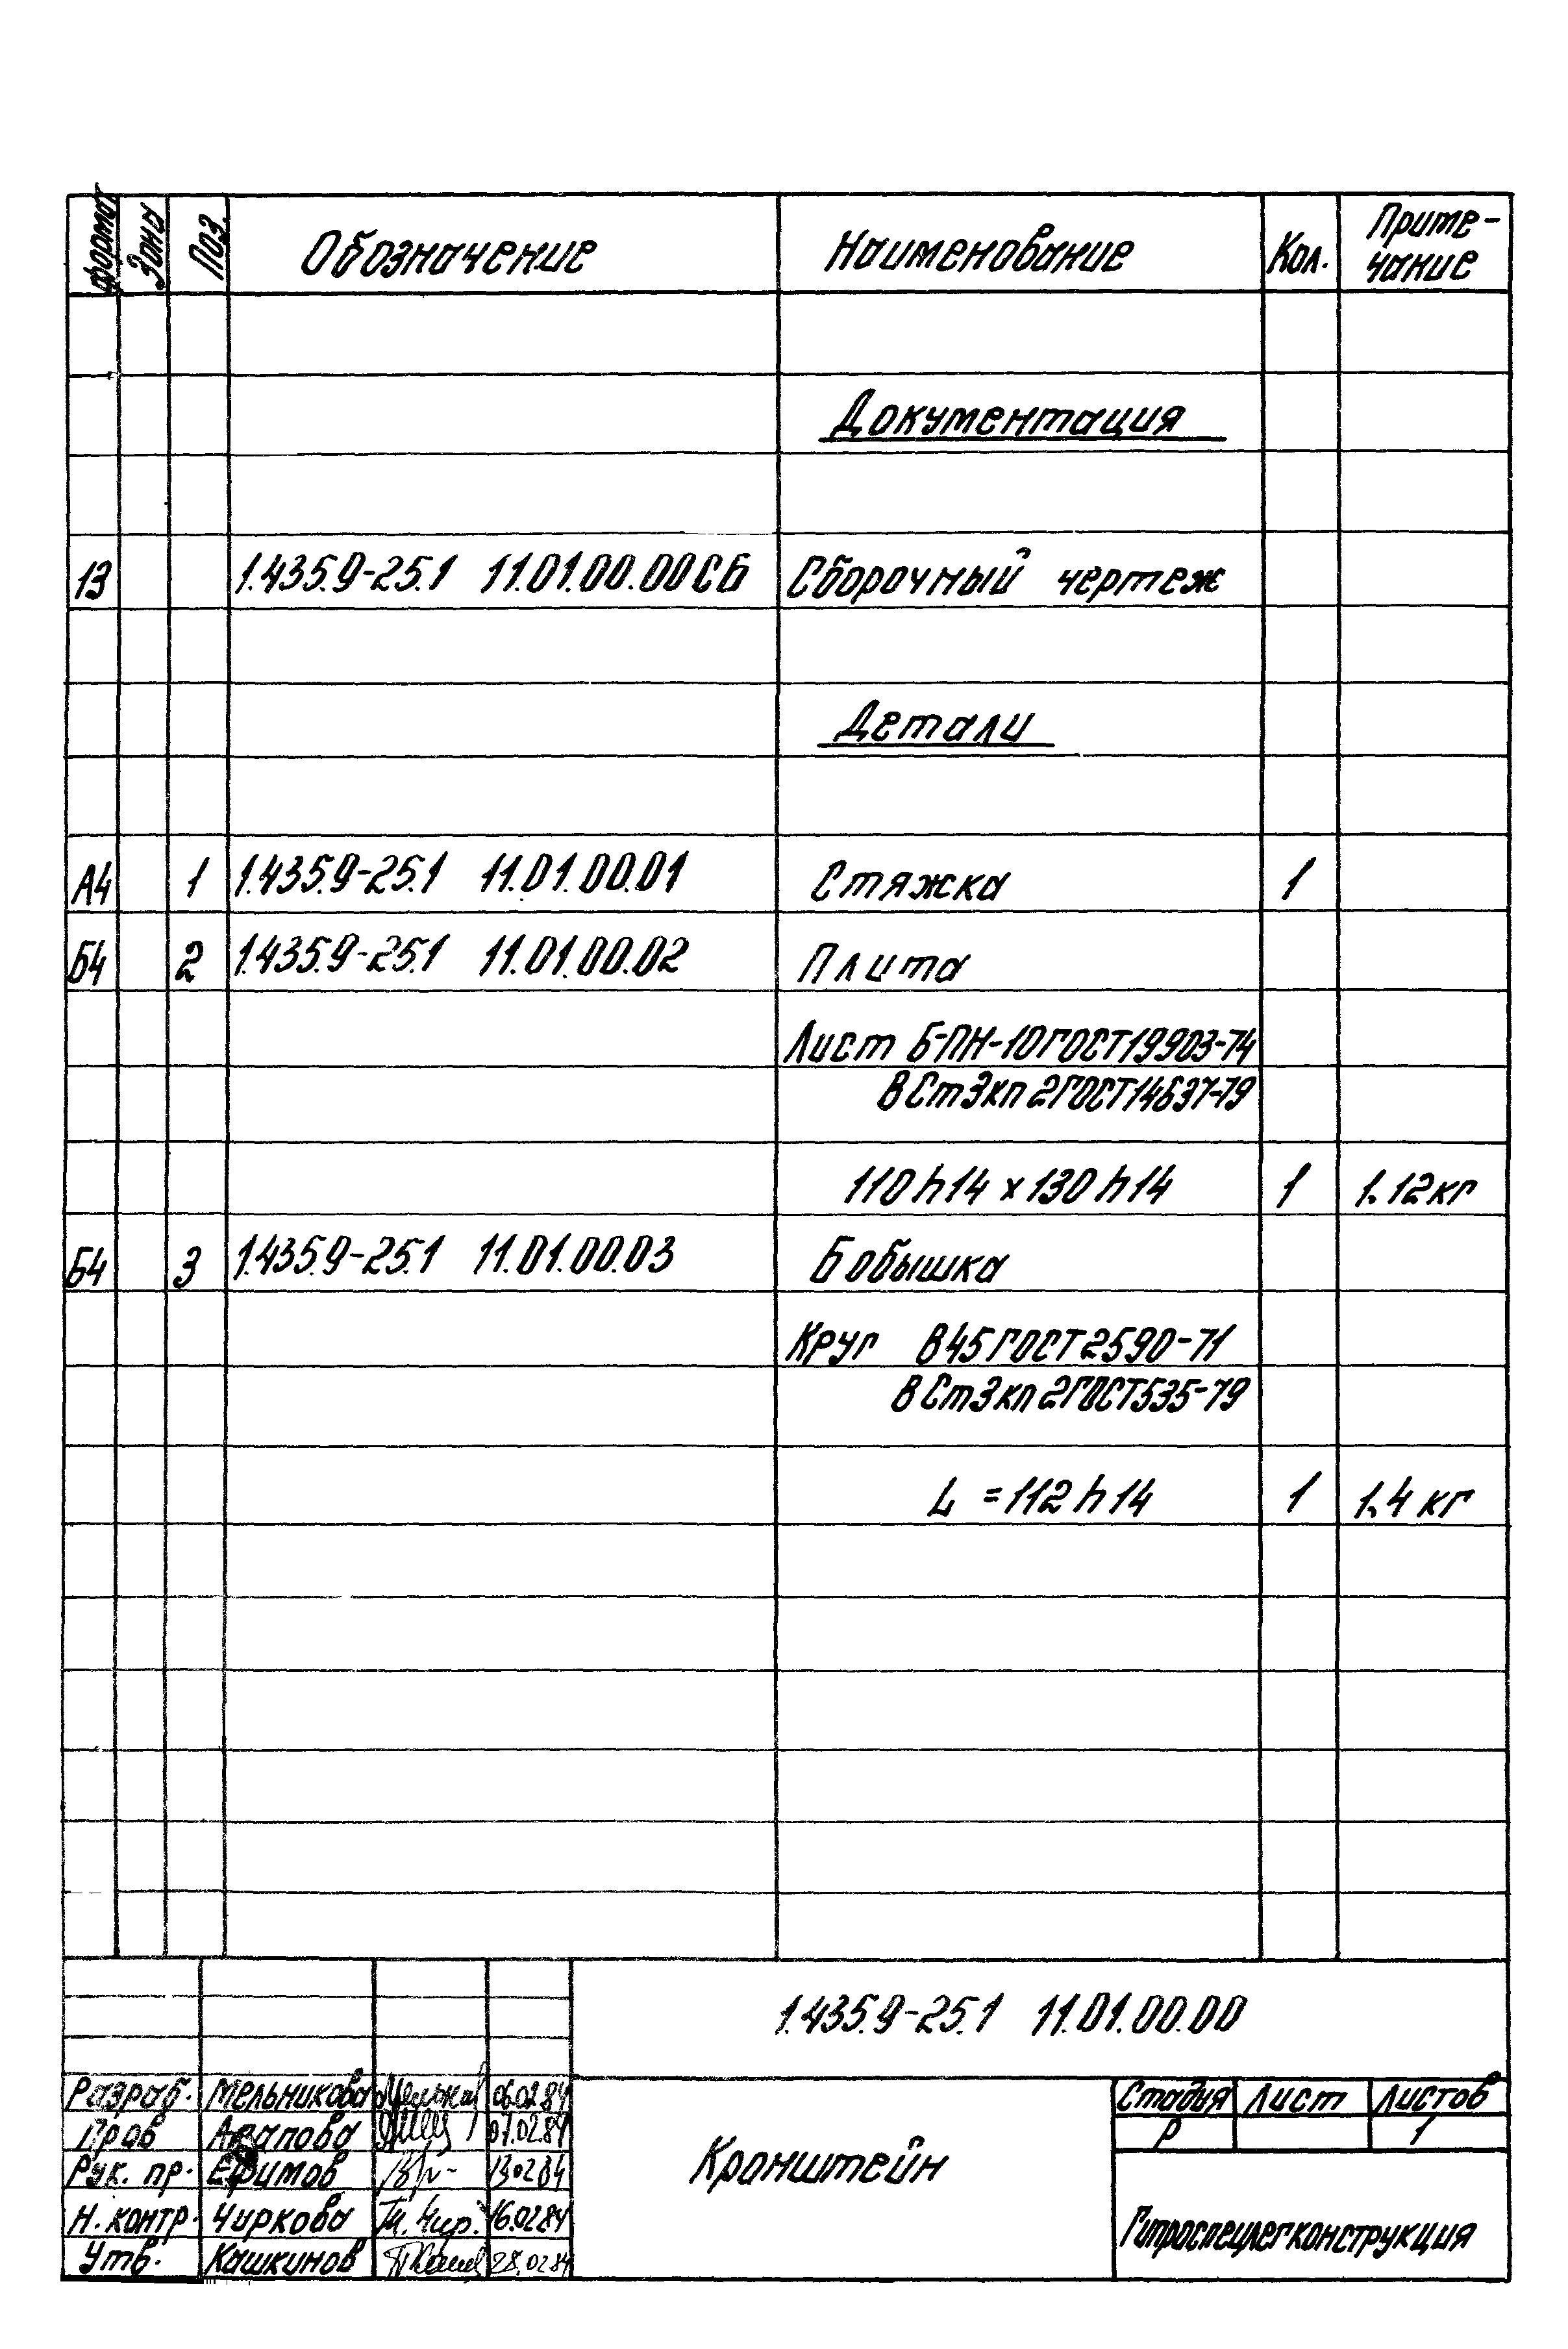 Формат Зона Поз. Обозначение Наименование Кол. Приме-
чание
Документация
13 1.435.9-25.1 11.01.00.00СБ Сборочный чертеж
Детали
А4 1 1.435.9-25.1 11.01.00.01 Стяжка 1
Б4 2 1.435.9-25.1 11.01.00.02 Плита
Лист Б-ПН-10 ГОСТ 19903-74
В Ст3кп2 ГОСТ 14637-79
110h14 x 130h14 1 1.12кг
Б4 3 1.435.9-25.1 11.01.00.03 Бобышка
Круг В45 ГОСТ 2590-71
В Ст3кп2 ГОСТ 535-79
L = 112h14 1 1.4 кг
1.435.9-25.1 11.01.00.00
Разраб. Мельникова 06.02.84
Пров Арапова 07.02.84
Рук. пр. Ефимов 13.02.84
Н. контр. Чиркова 16.02.84
Утв. Кашкинов 28.02.84
Кронштейн
Стадия Лист Листов
Р 1
Гипроспецлегконструкция